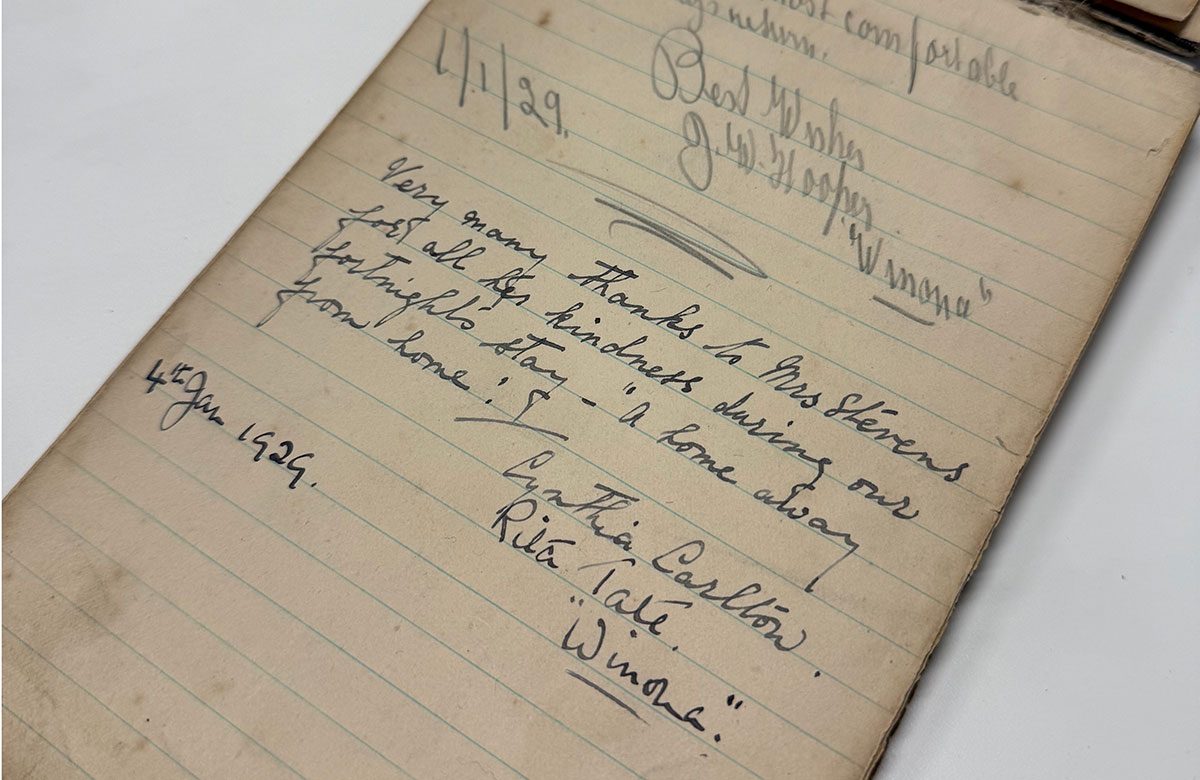 comfortable
Best
1/1/29.
Very many thanks to Mrs Stevens
for all her kindness during our
fortnight's stay - "A home away
from home!"
Cynthia Carlton.
Rita Tate.
"Winona".
4th Jan 1929.